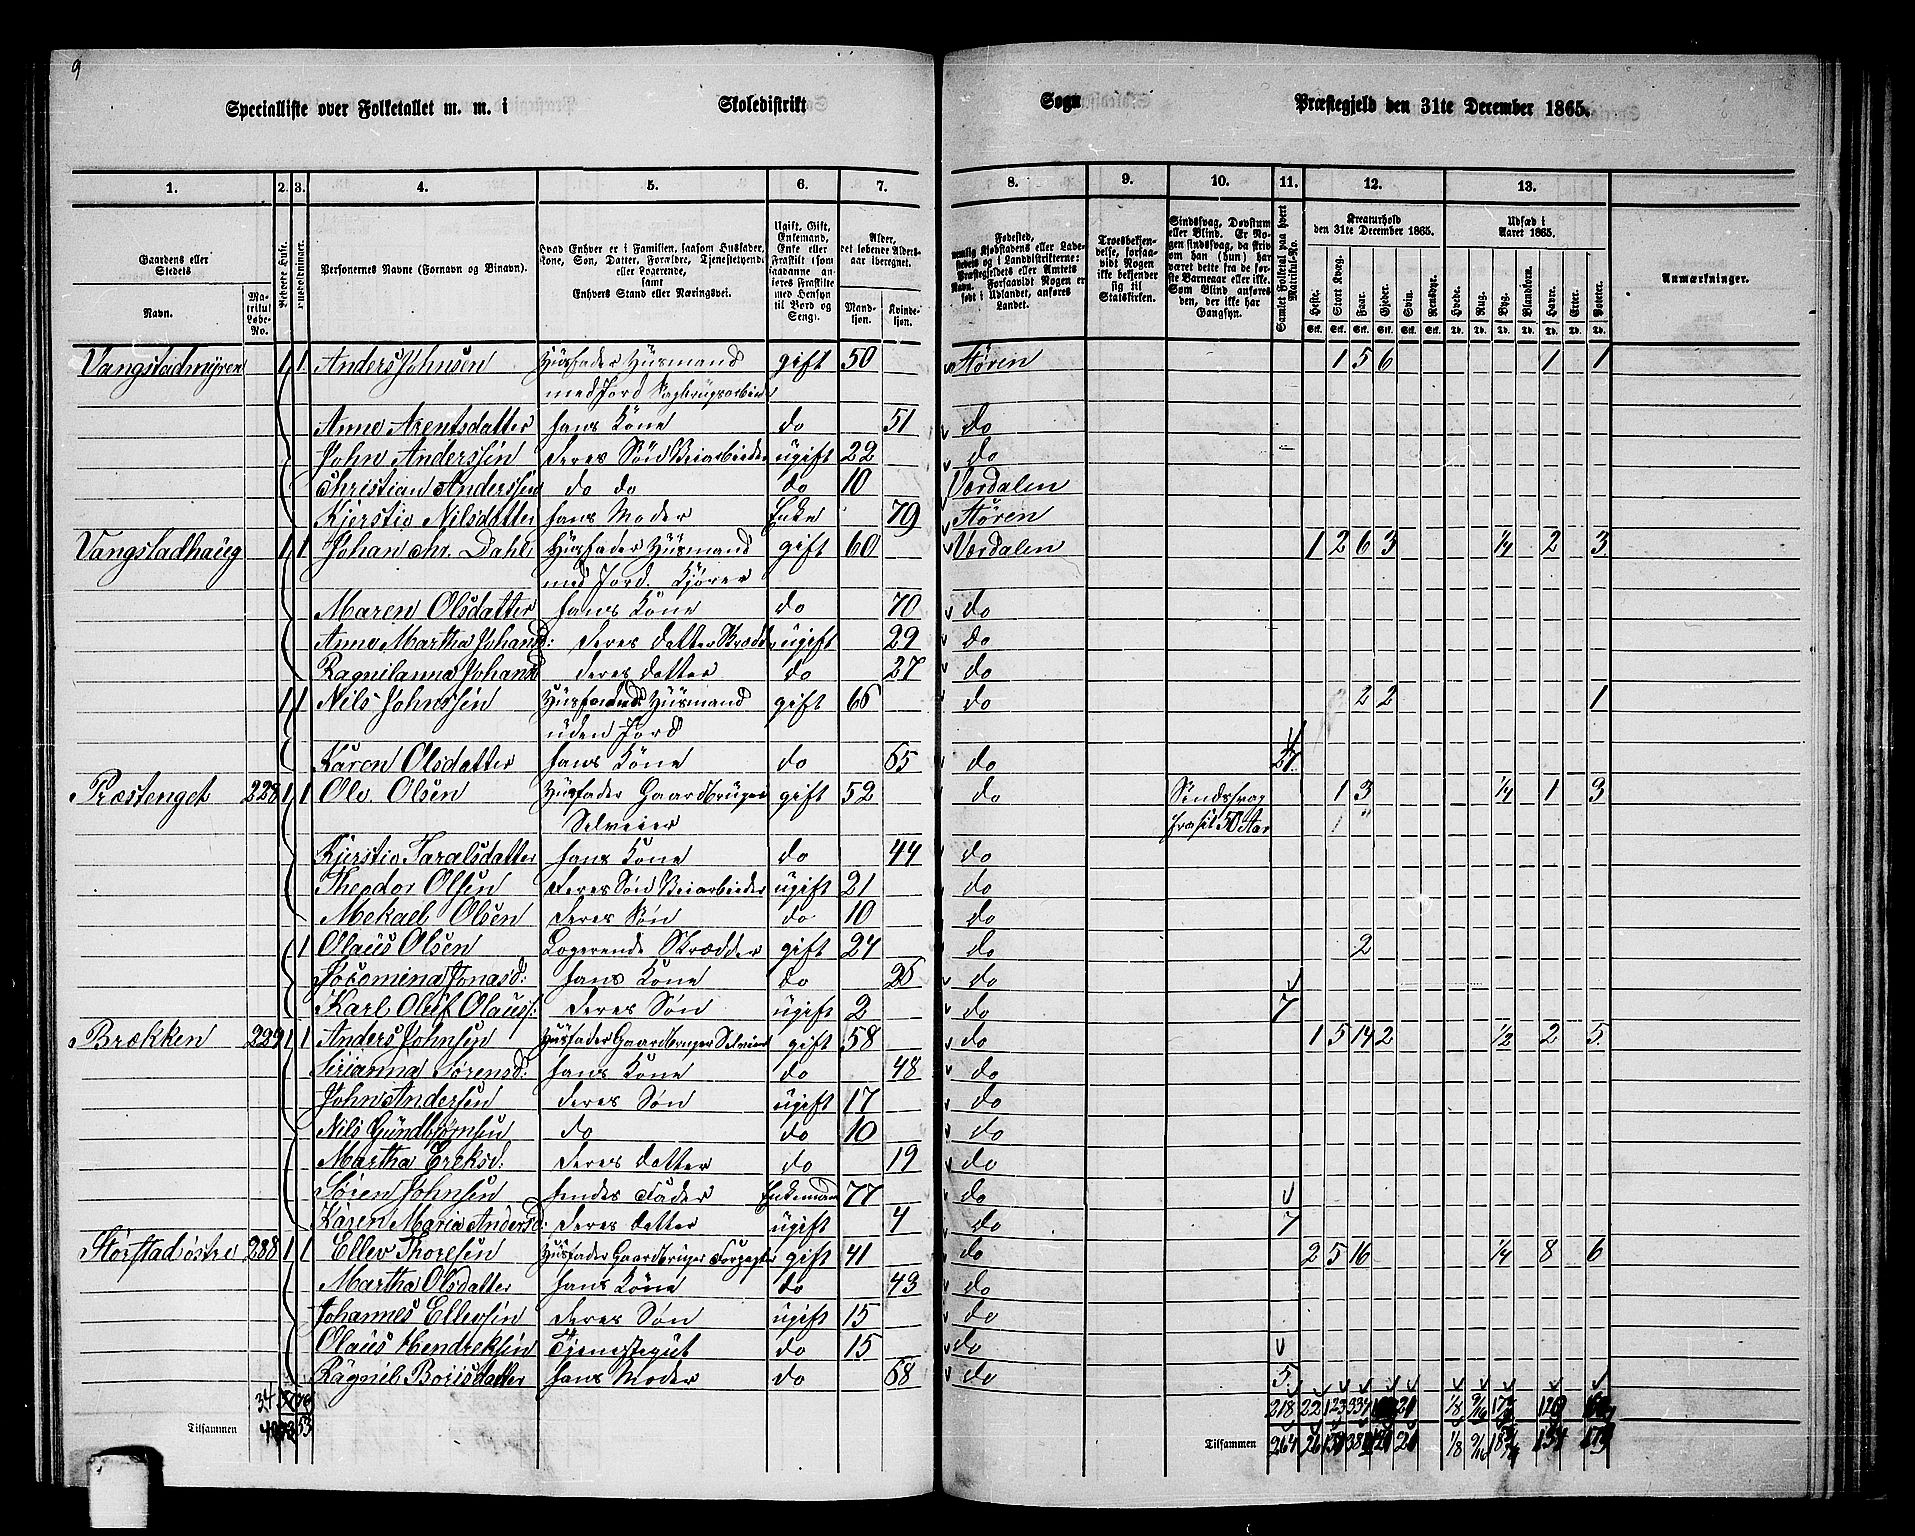 9
Specialliste over Folketallet m. m. i Skoledistrikt Sogn Præstegjeld den 31te December 1865.
1. 2. 3. 4. 5. 6. 7. 8. 9. 10. 11. 12. 13.
Gaardens eller Stedets
Navn.
Matrikul Løbe-No.
Beboede Huse.
Husholdninger.
Personernes Navne (Fornavn og Binavn).
Hvad Enhver er i Familien, saasom Husfader, Kone, Søn, Datter, Forældre, Tjenestetyende, eller Logerende, samt Enhvers Stand eller Næringsvei.
Ugift, Gift, Enkemand, Enke eller Fraskilt
Alder, det løbende Aldersaar iberegnet.
Mandkjøn. Kvindekjøn.
Fødested,
Troesbekjendelse, forsaavidt Nogen ikke bekjender sig til Statskirken.
Sindssvag, Døvstum eller Blind.
Samlet Folketal paa hvert Matrikul-No.
Kreaturhold den 31te December 1865.
Udsæd i Aaret 1865.
Heste. Stort Kvæg. Faar. Gjeder. Svin. Rensdyr. Hvede. Rug. Byg. Blandkorn. Havre. Erter. Poteter.
Anmærkninger.
Vangstadmyren 1 1 Anders Johnsen Husfader Husmand gift 50 Støren 1 5 6 1 1
med Jord
Anne Arentsdatter hans Kone do 51 do
John Anderssen deres Søn Veiarbeider ugift 22 do
Christian Anderssen do do do 10 Værdalen
Kjerstie Nilsdatter hans Moder Enke 79 Støren
Vangstadhaug 1 1 Johan Chr. Dahl Husfader Husmand gift 60 Værdalen 1 2 6 3 1/4 2 3
med Jord. Kjører
Maren Olsdatter hans Kone do 70 do
Anne Martha Johansd: deres datter ugift 29 do
Ragnilanna Johansd deres datter do 27 do
1 1 Nils Johnssen Husmand gift 66 do 2 2 1
uden Jord
Karen Olsdatter hans Kone do 65 do 21.
Præstenget 228 1 1 Ole Olsen Husfader Gaardbruger gift 52 do Sindssvag 1 3 1/4 1 3
Selveier 50 Aar
Kjerstie hans Kone do 44 do
Theodor Olsen deres Søn Veiarbeider ugift 21 do
Mekael Olsen deres Søn do 10 do
1 Olaus Olsen Logerende Skrædder gift 24 do 2
Jonasd: hans Kone do do
Karl Oluf Olauss: deres Søn ugift 2 do 7
Brækken 229 1 1 Anders Johnsen Husfader Gaardbruger Selveier gift 58 do 1 5 14 2 1/2 2 5
Sirianna Sørensd: hans Kone do 48 do
John Andersen deres Søn ugift 17 do
Nils Gundbrørnsen do do 10 do
Martha Ereksd: deres datter do 19 do
Søren Johnsen hendes Fader Enkemand 77 do
Karen Maria Andersd: deres datter ugift 4 do 7
Storstad østre 288 1 1 Ellev Thoresen Husfader Gaardbruger Forpagter gift 41 do 2 5 16 1/4 8 6
Martha Olsdatter hans Kone do 43 do
Johannes Ellevsen deres Søn ugift 15 do
Olaus Hendreksen Tjenestegut do 15 do
Ragnil hans Moder do 68 do 5.
218 22 123 334 1/8
Tilsammen Tilsammen 264 26 1/8